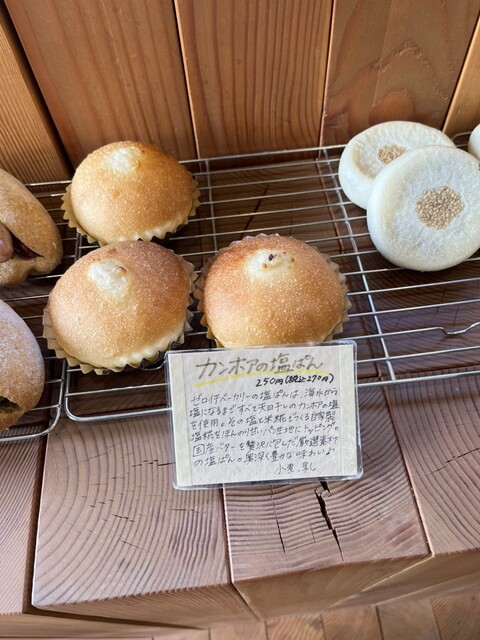 カンホアの塩ぱん
250円(税込270円)
ゼロイチベーカリーの塩ぱんは、海水から
塩になるまですべて天日干しのカンホアの塩
を使用。その塩と米糀でつくる自家製
塩糀をほんのり甘いパン生地にトッピング。
国産バターを贅沢に包んだ厳選素材
の塩ぱん。奥深く豊かな味わい♪
小麦、乳